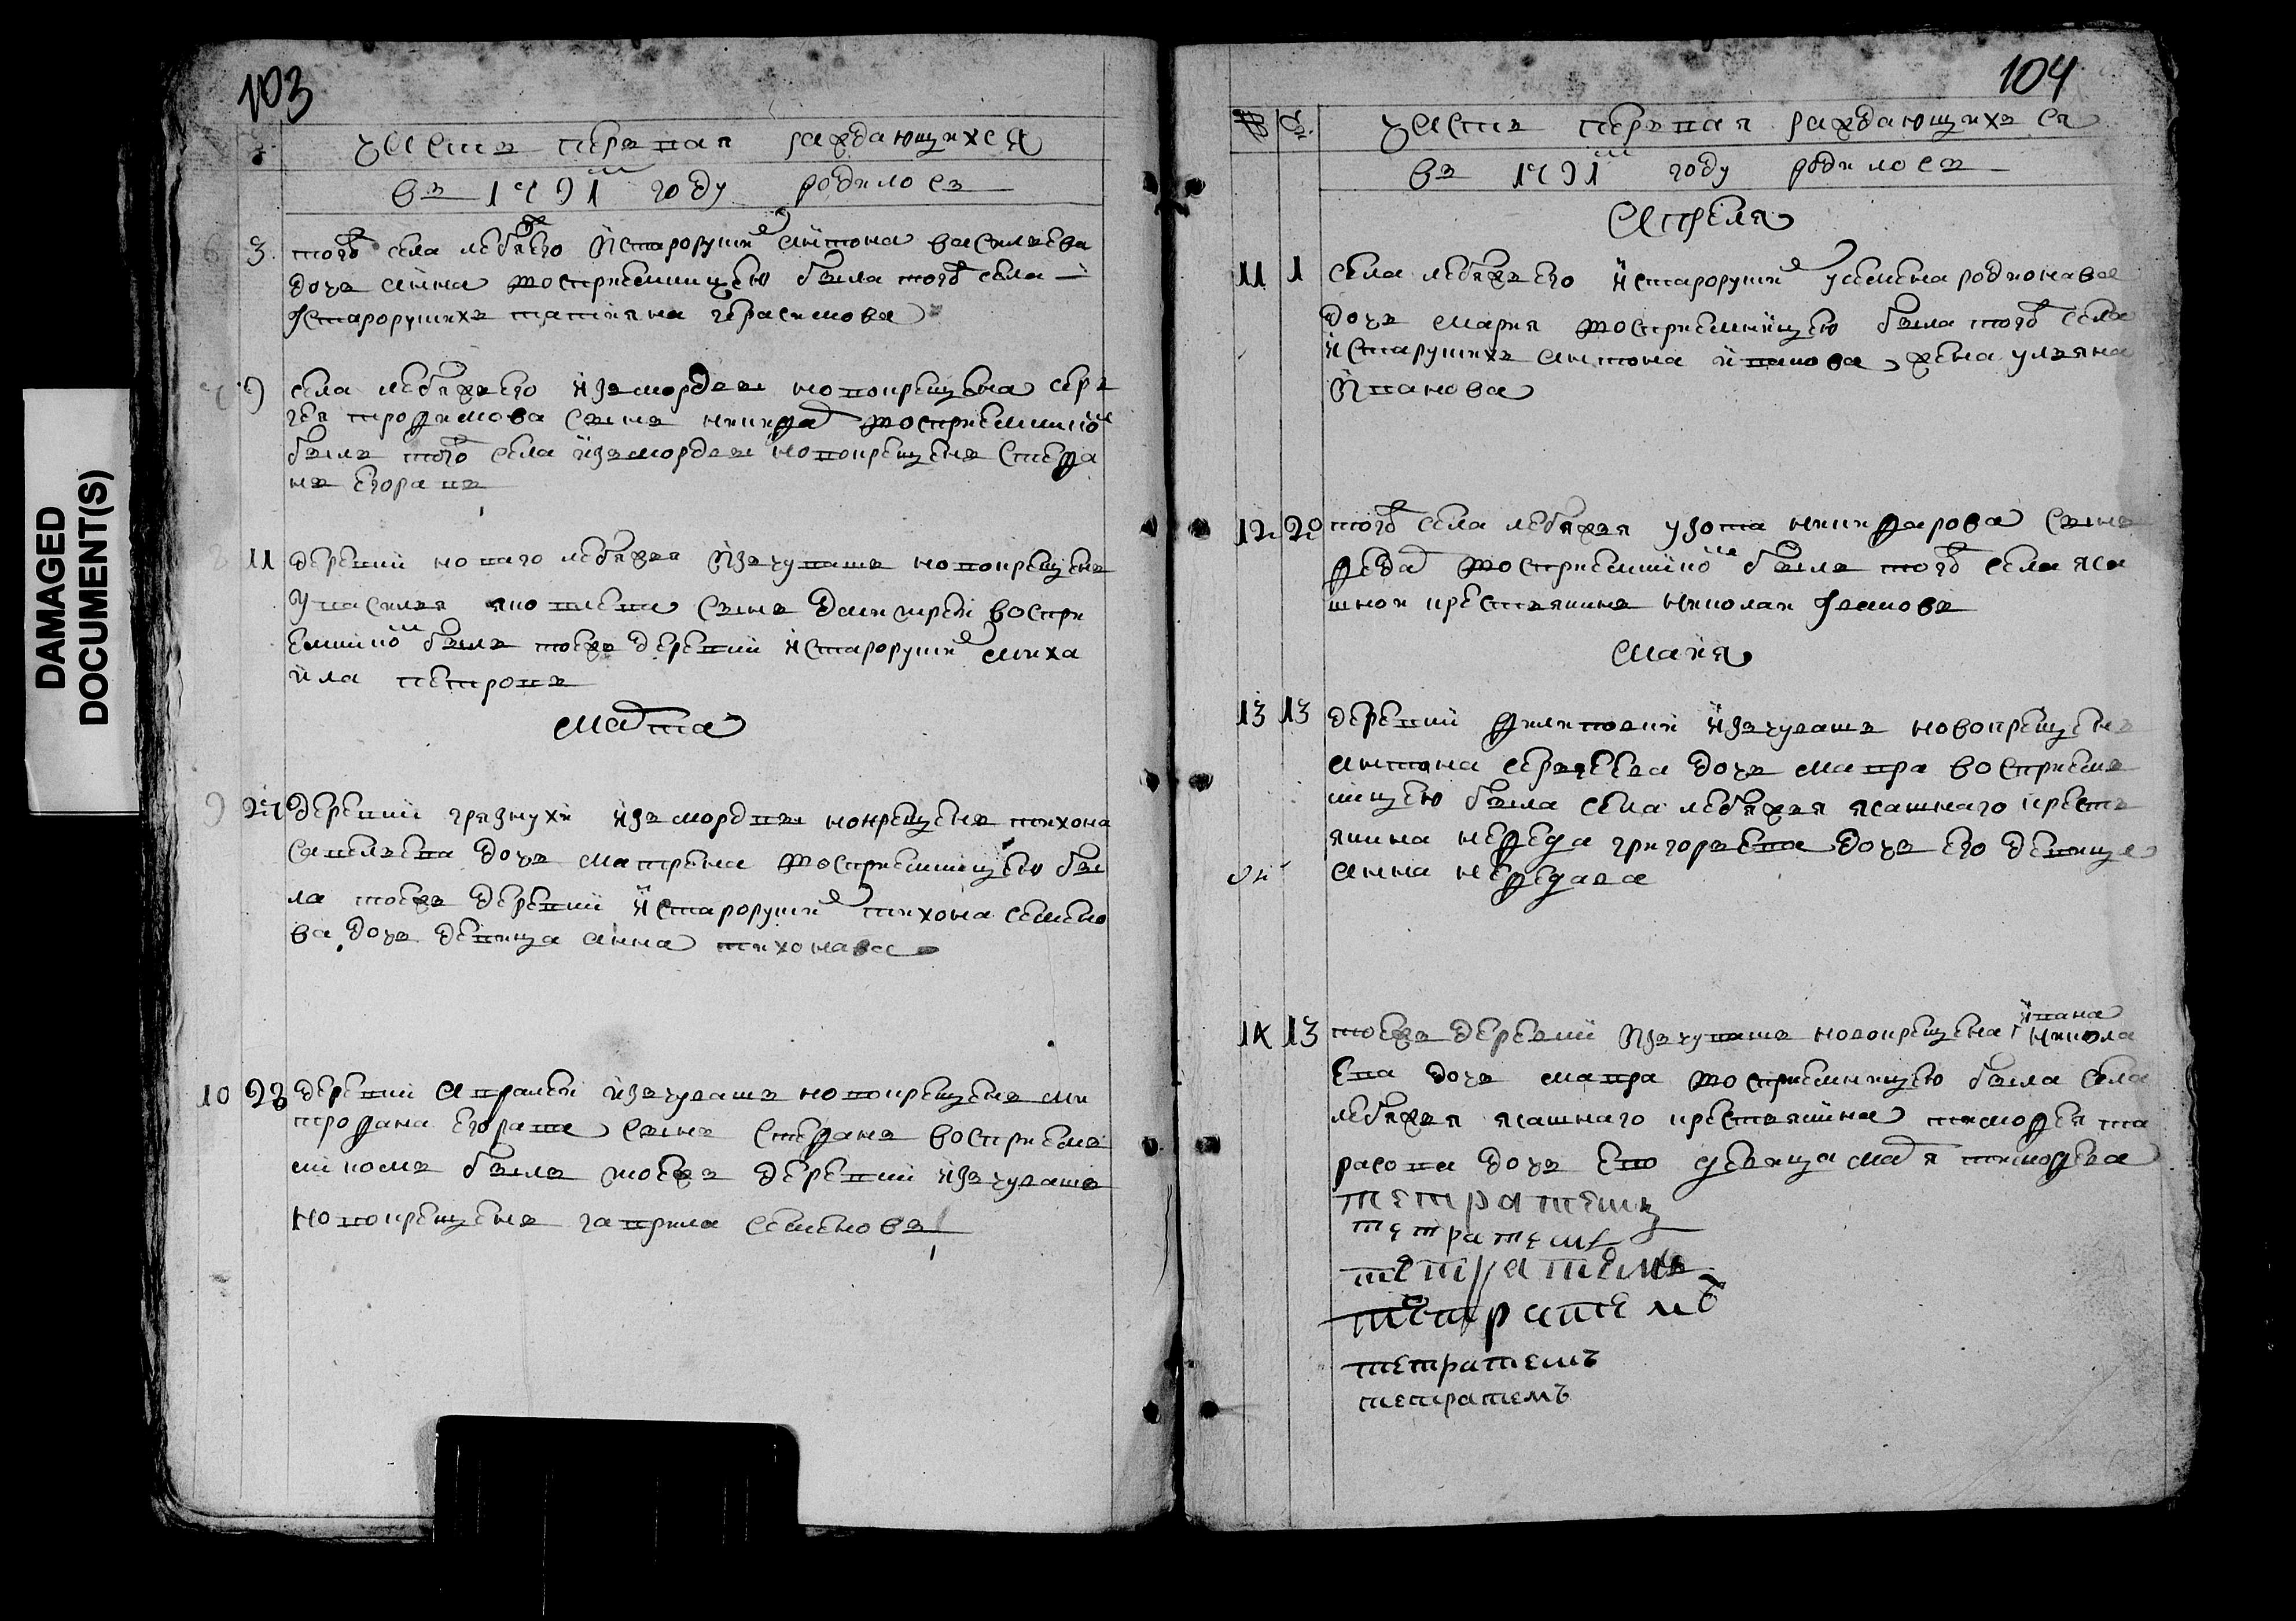 DAMAGED
DOCUMENT(S)
103
часть первая раждающихся
въ 1791м году родилось
6 3 тогож села лебяжего исторопушких антона васильева
дочь анна восприемницею была тогож села
татияна герасимова
7 9 села лебяжьего изъ мордвы новокрещена сер
гея трофимова сынъ никифор восприемником
былъ того села изъ мордвы новокрещенъ степа
нъ егоравъ
8 11 деревни новаго лебяжья изъ чувашъ новокрещена
у василья сынъ димитрей воспри
емником былъ тоежъ деревни миха
йла петровъ
марта
9 27 деревни грязнухи изъ мордвы новкрещенъ тихона
савельева дочь матрена восприемницею бы
ла тоежъ деревни тихона семено
ва дочь девица анна тихонава
10 28 деревни изъ чувашъ новокрещенъ ми
трофана егорава сынъ стефанъ восприемъ
никомъ былъ тоежъ деревни изъ чувашъ
новокрещенъ гаврила семеновъ
104
часть первая раждающихъ ся
въ 1791м году родилось
апреля
11 1 села лебяжьего у семена родионава
дочь мария восприемницею была тогож села
антона иванова жена ульяна
иванова
12 20 тогож села лебяжья у зота никифарова сынъ
федор восприемником былъ тогож села яса
шнои крестьянинъ николаи ивановъ
маия
13 13 деревни филиповки изъ чувашъ новокрещенъ
антона сергеева дочь мавра восприемъ
ницею была села лебяжья ясашнаго кресть
янина нефеда григорьева дочь его девица
анна нефедава
14 13 тоежъ деревни изъ чувашъ новокрещена ивана никола
ева дочь мавра восприемницею была села
лебяжья ясашнаго крестьянина тимофея та
расова дочь ево девица марья тимофева
тетратемъ
тетратемъ
тетратемъ
тетратемъ
тетратемъ
тетратемъ